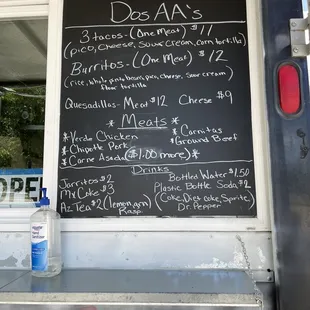 Dos AA's
3 tacos - (One Meat) $11
(pico, cheese, sour cream, corn tortilla)
Burritos - (One Meat) $12
(rice, whole pinto beans, pico, cheese, sour cream)
flour tortilla
Quesadillas - Meat $12 Cheese $9
*Meats*
*Verde Chicken *Carnitas
*Chipotle Pork *Ground Beef
*Carne Asada ($1.00 more) *
Drinks
Jarritos $2 Bottled Water $1.50
Mx Coke $3 Plastic Bottle Soda $2
Az Tea $2 (lemon, arn) (Coke, Diet Coke, Sprite)
Rasp Dr. Pepper
OPE